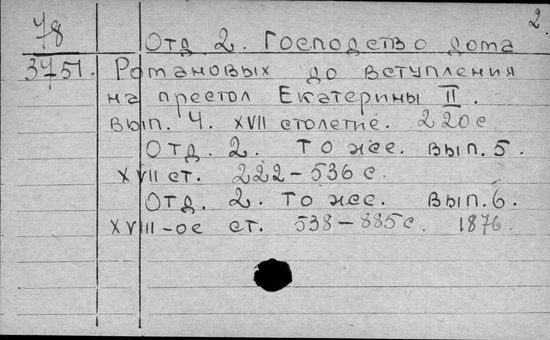 2.
78
3751.
Отд 2. Господство дома
Романовых до вступления
на престол Екатерины II.
вып. 4. XVII столетие. 220 с
Отд. 2. То же. вып. 5.
XVII ст. 222-536 с.
Отд. 2. То же. вып. 6.
XVIII-ое ст. 538-885 с. 1876.